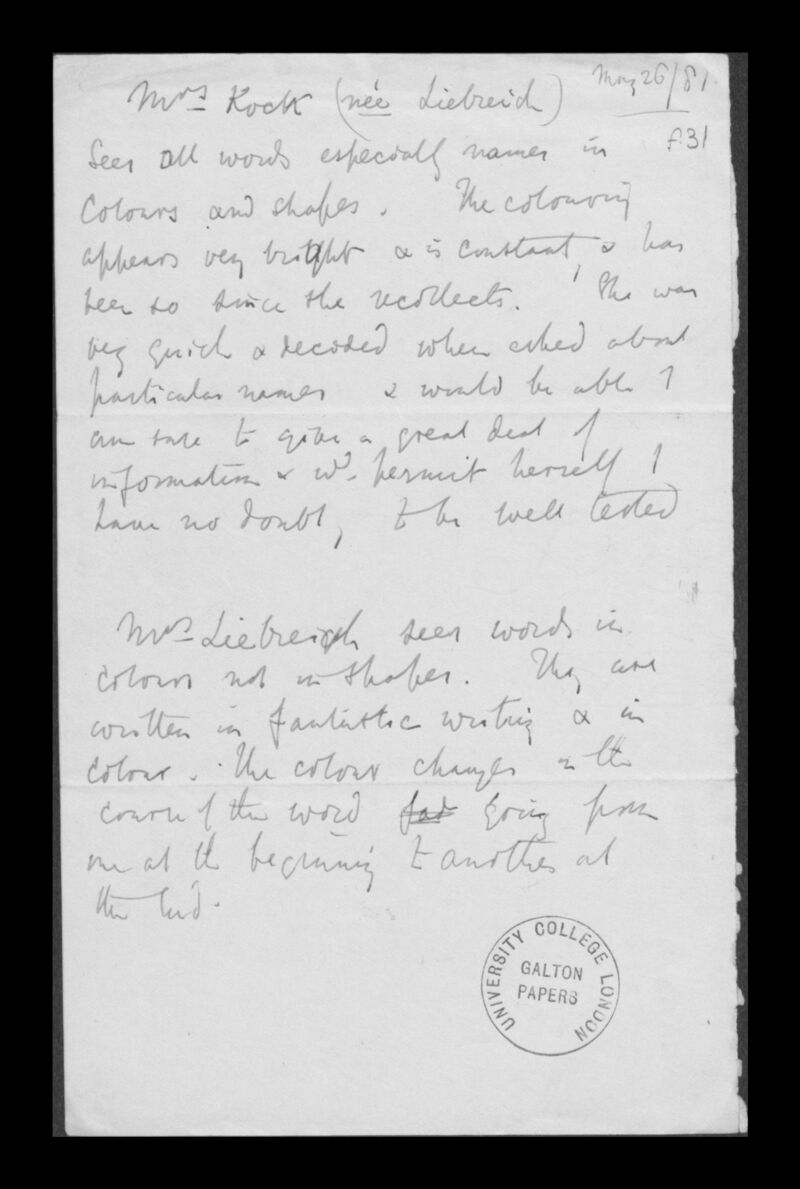 May 26/81
Mrs Kock (née Liebreich)
f.31
Sees all words especially names in
Colours and shapes. The colouring
appears very bright & is constant, & has
been so since she recollects. She was
very quick & decided when asked about
particular names & would be able I
am sure to give a great deal of
information & wd. permit herself I
have no doubt, to be well tested
Mrs Liebreich sees words in
colours not in shapes. They are
written in fantastic writing & in
colour. The colour changes in the
course of the word going from
one at the beginning to another at
the end.
UNIVERSITY COLLEGE LONDON
GALTON
PAPERS